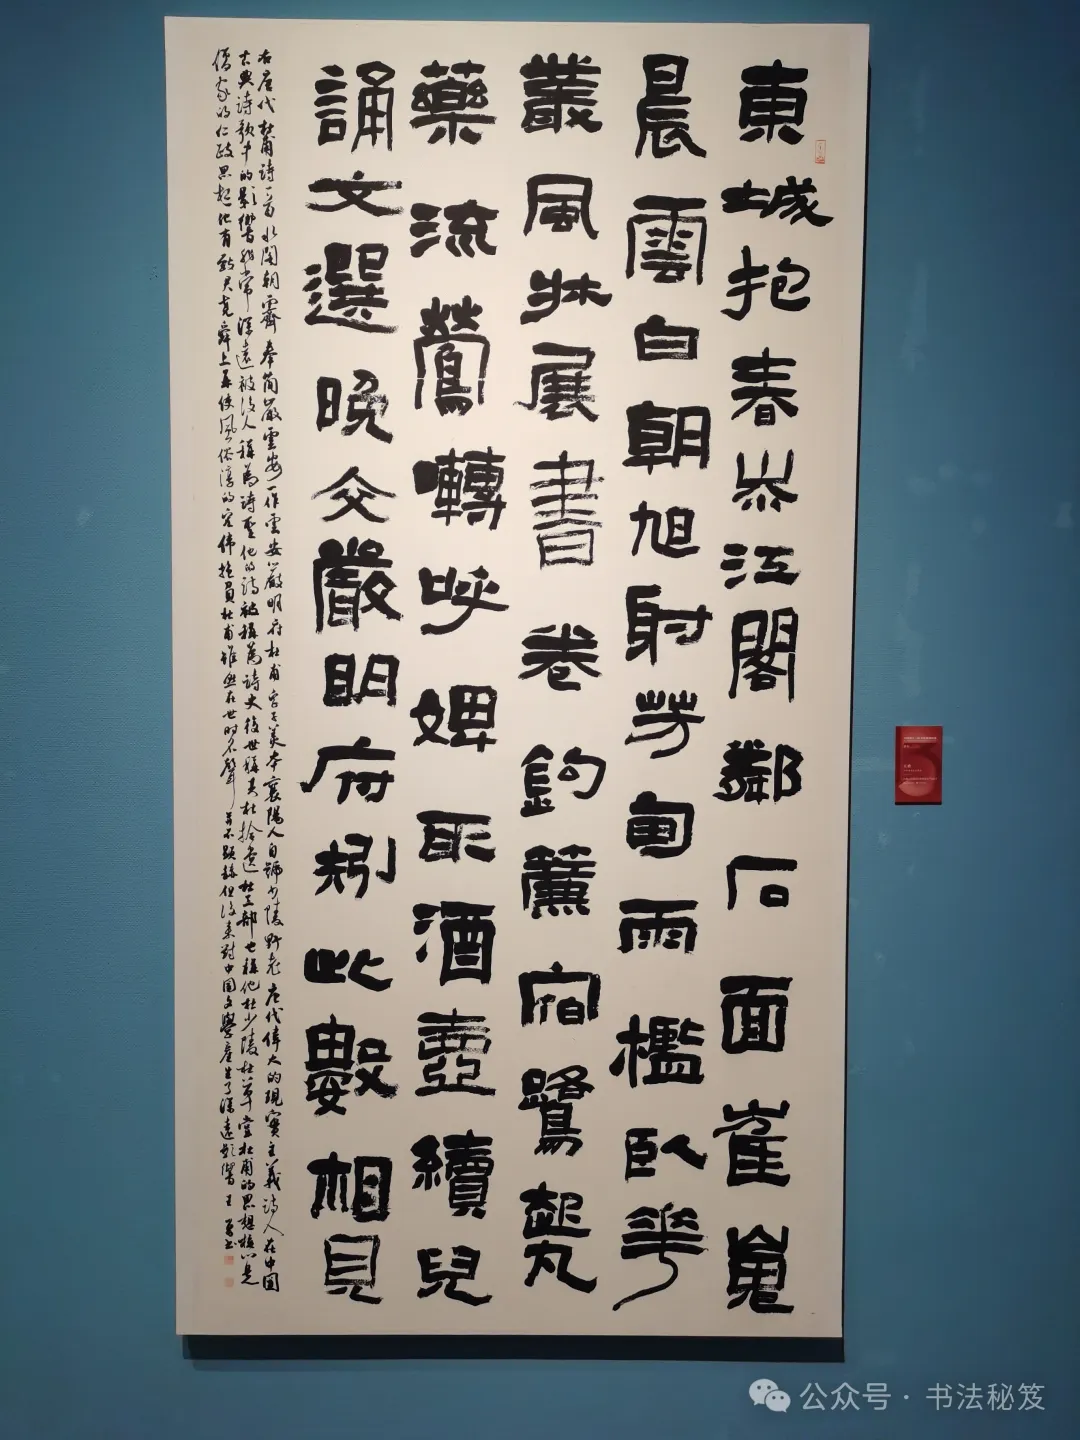 東城抱春岑江閣鄰石面崔嵬
晨雲白朝旭射芳甸雨檻臥華
叢風牀展書卷鈎簾宿鷺起丸
藥流鶯囀呼婢取酒壺續兒
誦文選晚交嚴明府矧此數相見
右唐代杜甫詩一首水閣朝霽奉簡嚴雲安一作雲安嚴明府杜甫字子美本襄陽人自號少陵野老唐代偉大的現實主義詩人在中國
古典詩歌中的影響非常深遠被後人稱為詩聖他的詩被稱為詩史後世稱其杜拾遺杜工部也稱他杜少陵杜草堂杜甫的思想核心是
儒家的仁政思想他有致君堯舜上再使風俗淳的宏偉抱負杜甫雖然在世時名聲並不顯赫但後來對中国文學產生了深遠影響王書
公众号·书法秘笈